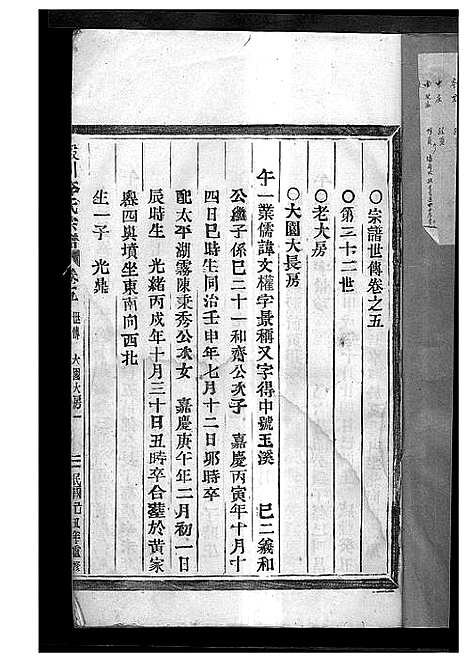 ○宗譜世傳卷之五
○第三十二世
○老大房
○大園大長房
午一業儒諱文權字景稱又字得中號玉溪　已二義和
公繼子係已二十一和齋公次子　嘉慶丙寅年十月十
四日巳時生同治壬申年七月十二日卯時卒
配太平湖霧陳秉秀公次女　嘉慶庚午年二月初一日
辰時生　光緒丙戌年十月三十日丑時卒合葬於黄家
嶴四與墳坐東南向西北
生一子　光鼎
氏宗譜　卷之五　世傳　大園大房一　民國乙丑年重修